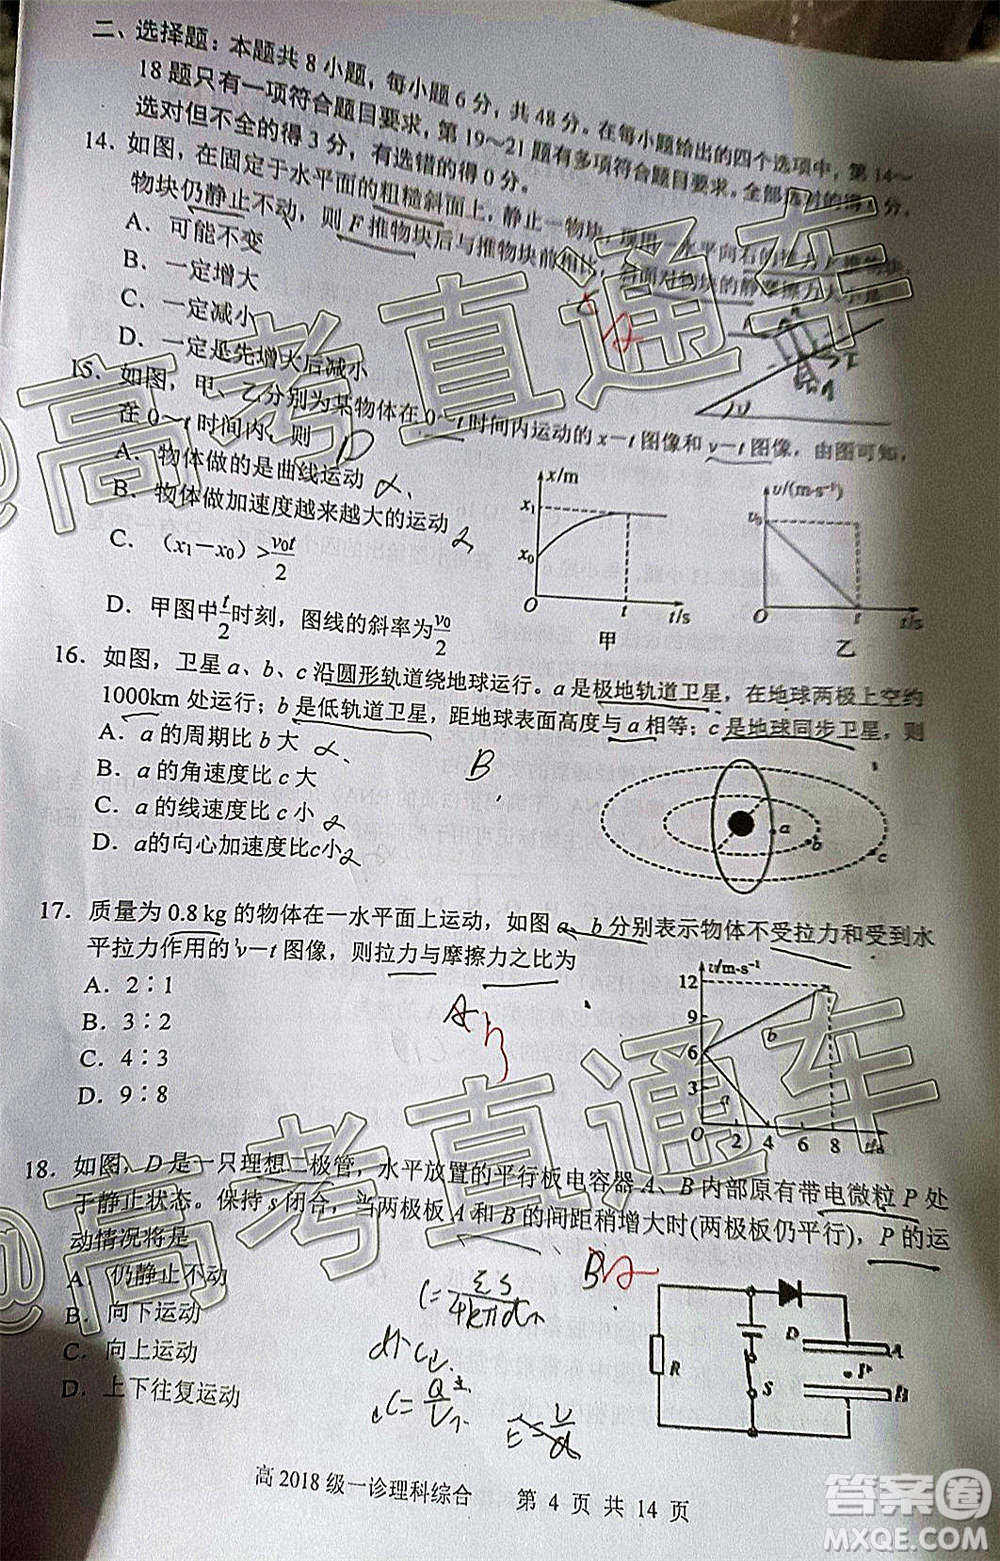 二、选择题：本题共 8 小题，每小题 6 分，共 48 分。在每小题给出的四个选项中，第 14～
18 题只有一项符合题目要求，第 19～21 题有多项符合题目要求。全部选对的得 6 分，
选对但不全的得 3 分，有选错的得 0 分。
14．如图，在固定于水平面的粗糙斜面上，静止一物块，现用一水平向右的推力 F 推物块，
物块仍静止不动，则 F 推物块后与推物块前相比，斜面对物块的静摩擦力大小是
A．可能不变
B．一定增大
C．一定减小
D．一定是先增大后减小
15．如图，甲、乙分别为某物体在 0～t 时间内运动的 x－t 图像和 v－t 图像，由图可知，
在 0～t 时间内，则
A．物体做的是曲线运动
B．物体做加速度越来越大的运动
C．（x₁－x₀）>v₀t/2
D．甲图中t/2时刻，图线的斜率为v₀/2
x/m
x₁
x₀
O t t/s
甲
υ/(m·s⁻¹)
v₀
O t t/s
乙
16．如图，卫星 a、b、c 沿圆形轨道绕地球运行。a 是极地轨道卫星，在地球两极上空约
1000km 处运行；b 是低轨道卫星，距地球表面高度与 a 相等；c 是地球同步卫星，则
A．a 的周期比 b 大
B．a 的角速度比 c 大
C．a 的线速度比 c 小
D．a的向心加速度比c小
B
a
b
c
17．质量为 0.8 kg 的物体在一水平面上运动，如图 a、b 分别表示物体不受拉力和受到水
平拉力作用的 v－t 图像，则拉力与摩擦力之比为
A．2∶1
B．3∶2
C．4∶3
D．9∶8
A
υ/m·s⁻¹
12
9
6
3
0 2 4 6 8 t/s
a
b
18．如图，D 是一只理想二极管，水平放置的平行板电容器 A、B 内部原有带电微粒 P 处
于静止状态。保持 s 闭合，当两极板 A 和 B 的间距稍增大时(两极板仍平行)，P 的运
动情况将是
A．仍静止不动
B．向下运动
C．向上运动
D．上下往复运动
B
R
D
S
A
P
B
高 2018 级一诊理科综合 第 4 页 共 14 页
@高考直通车
@高考直通车
答案圈
MXQE.COM